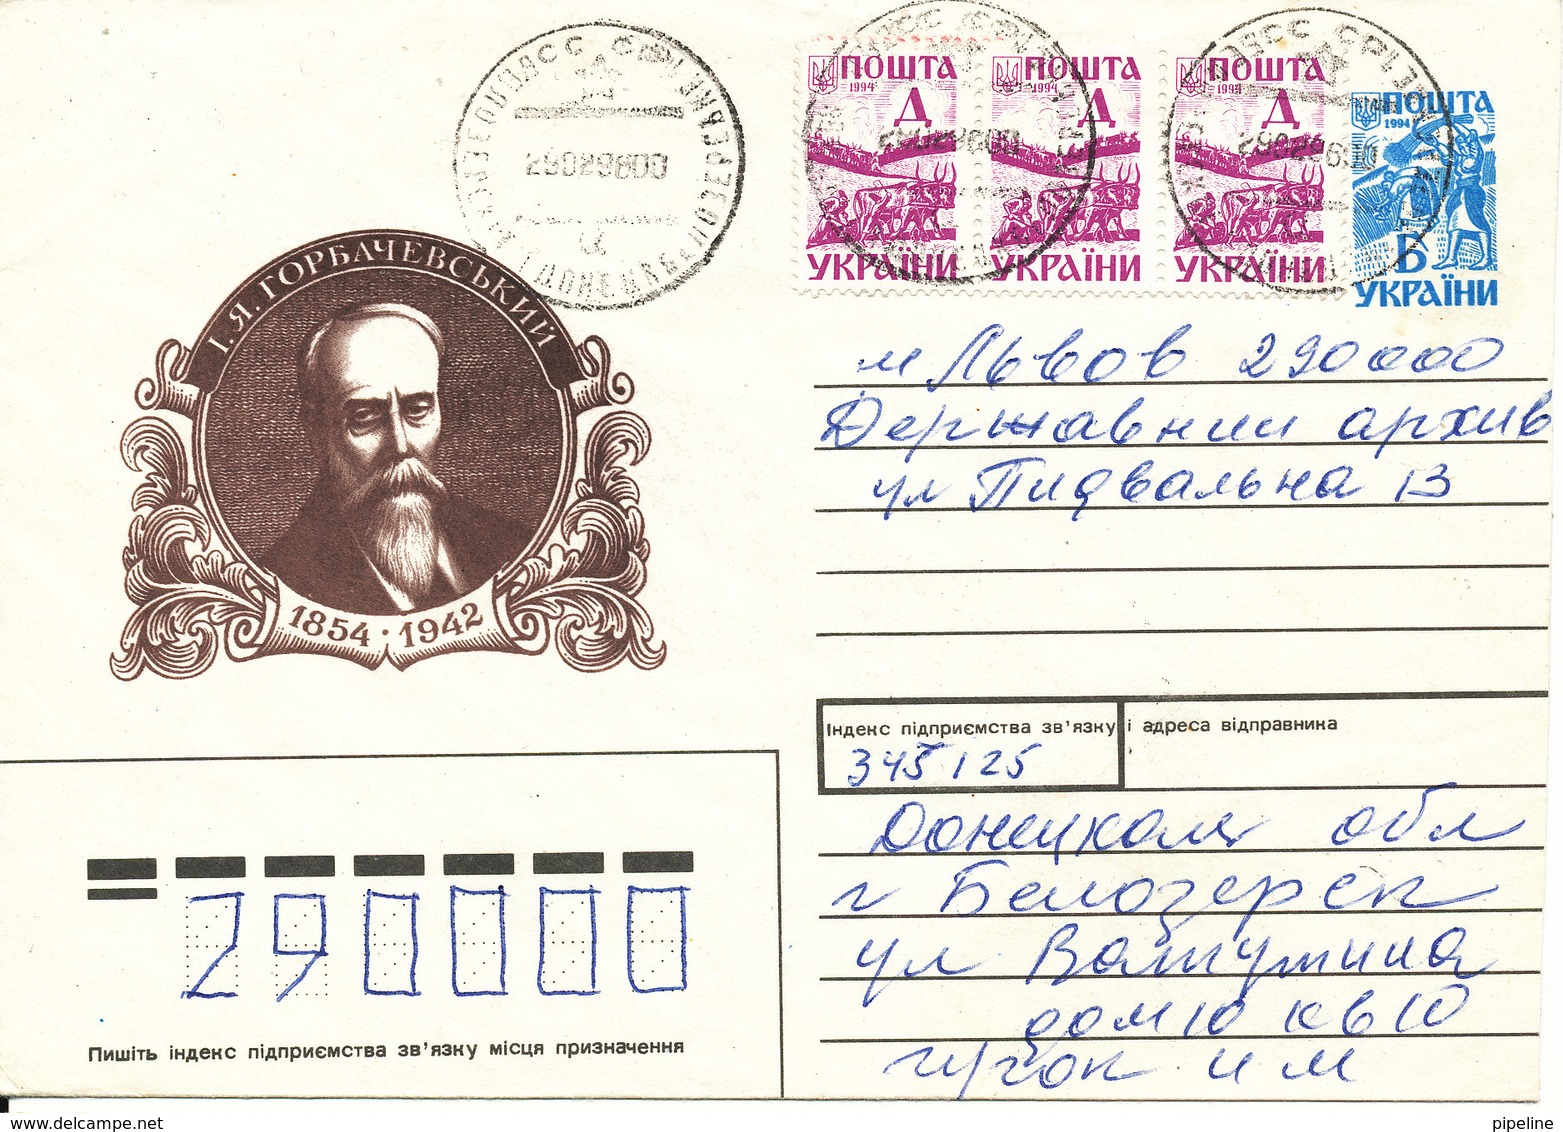 ПОШТА ПОШТА ПОШТА ПОШТА
1994 1994 1994 1994
Д Д Д Б
УКРАЇНИ УКРАЇНИ УКРАЇНИ УКРАЇНИ
290296 00
290296 00
290296 00
І. Я. ГОРБАЧЕВСЬКИЙ
1854 · 1942
м Львов 290000
Державнии архив
ул Пидвальна 13
Індекс підприємства зв'язку і адреса відправника
345125
Донецкая обл
г Белозерск
ул Ватутина
дом 10 кв 10
290000
Пишіть індекс підприємства зв'язку місця призначення
pipeline